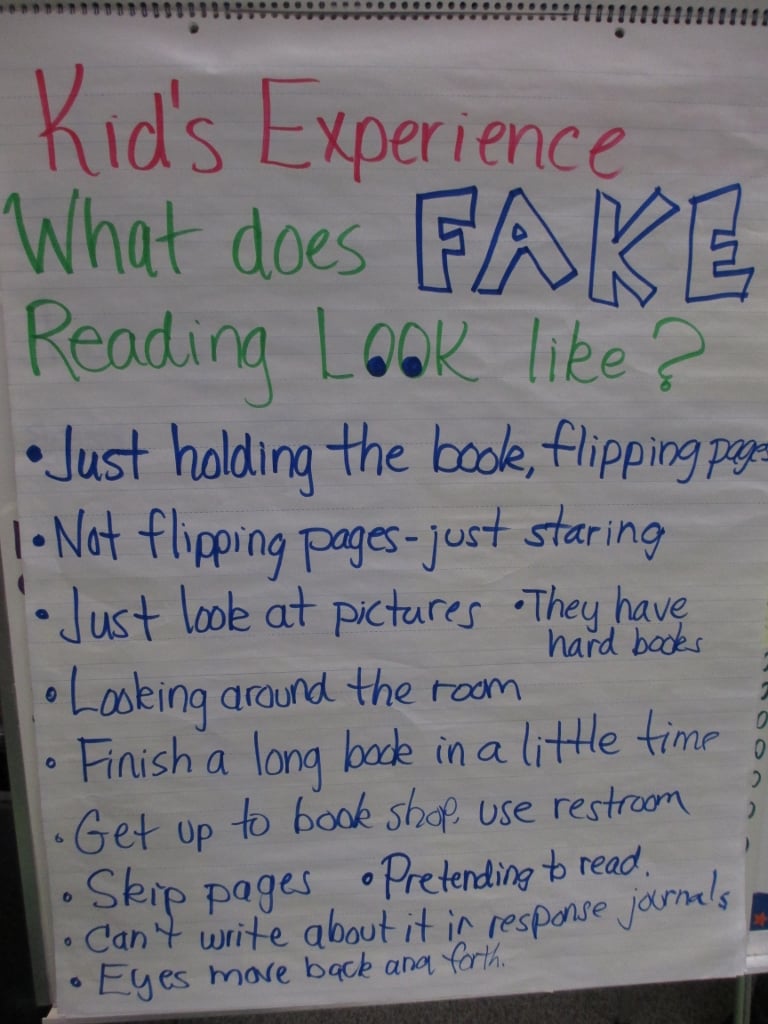 Kid's Experience
What does FAKE
Reading Look like?
• Just holding the book, flipping pages
• Not flipping pages - just staring
• Just look at pictures • They have
hard books
• Looking around the room
• Finish a long book in a little time
• Get up to book shop, use restroom
• Skip pages • Pretending to read.
• Can't write about it in response journals
• Eyes move back and forth.